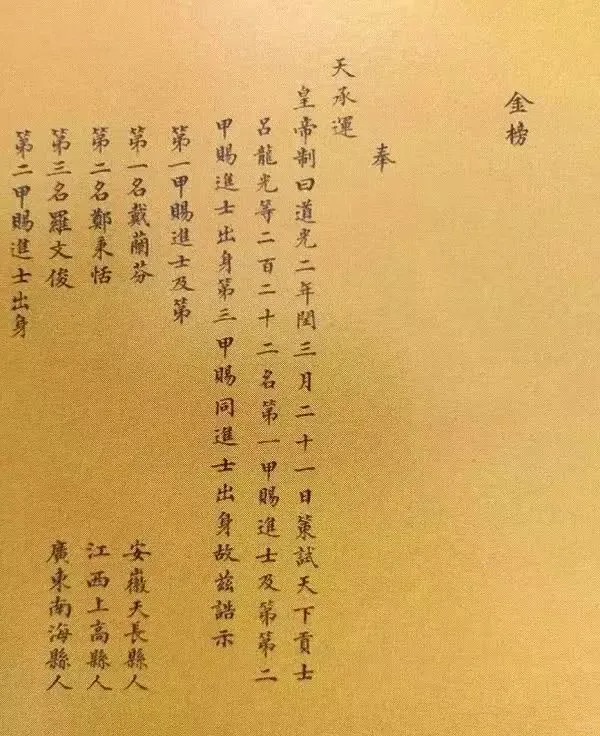 金榜
奉
天承運
皇帝制曰道光二年閏三月二十一日策試天下貢士
呂龍光等二百二十二名第一甲賜進士及第第二
甲賜進士出身第三甲賜同進士出身故茲誥示
第一甲賜進士及第
第一名戴蘭芬 安徽天長縣人
第二名鄭秉恬 江西上高縣人
第三名羅文俊 廣東南海縣人
第二甲賜進士出身